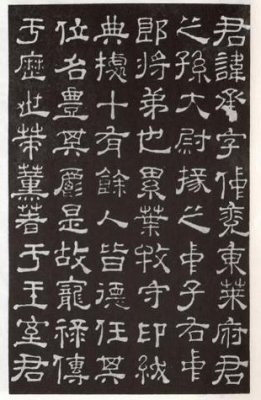 君諱承字仲兖東萊府君
之孫大尉掾之中子右中
郎將弟也累葉牧守印紱
典據十有餘人皆德任其
位名豊其爵是故寵祿傳
于歷世策薰著于王室君